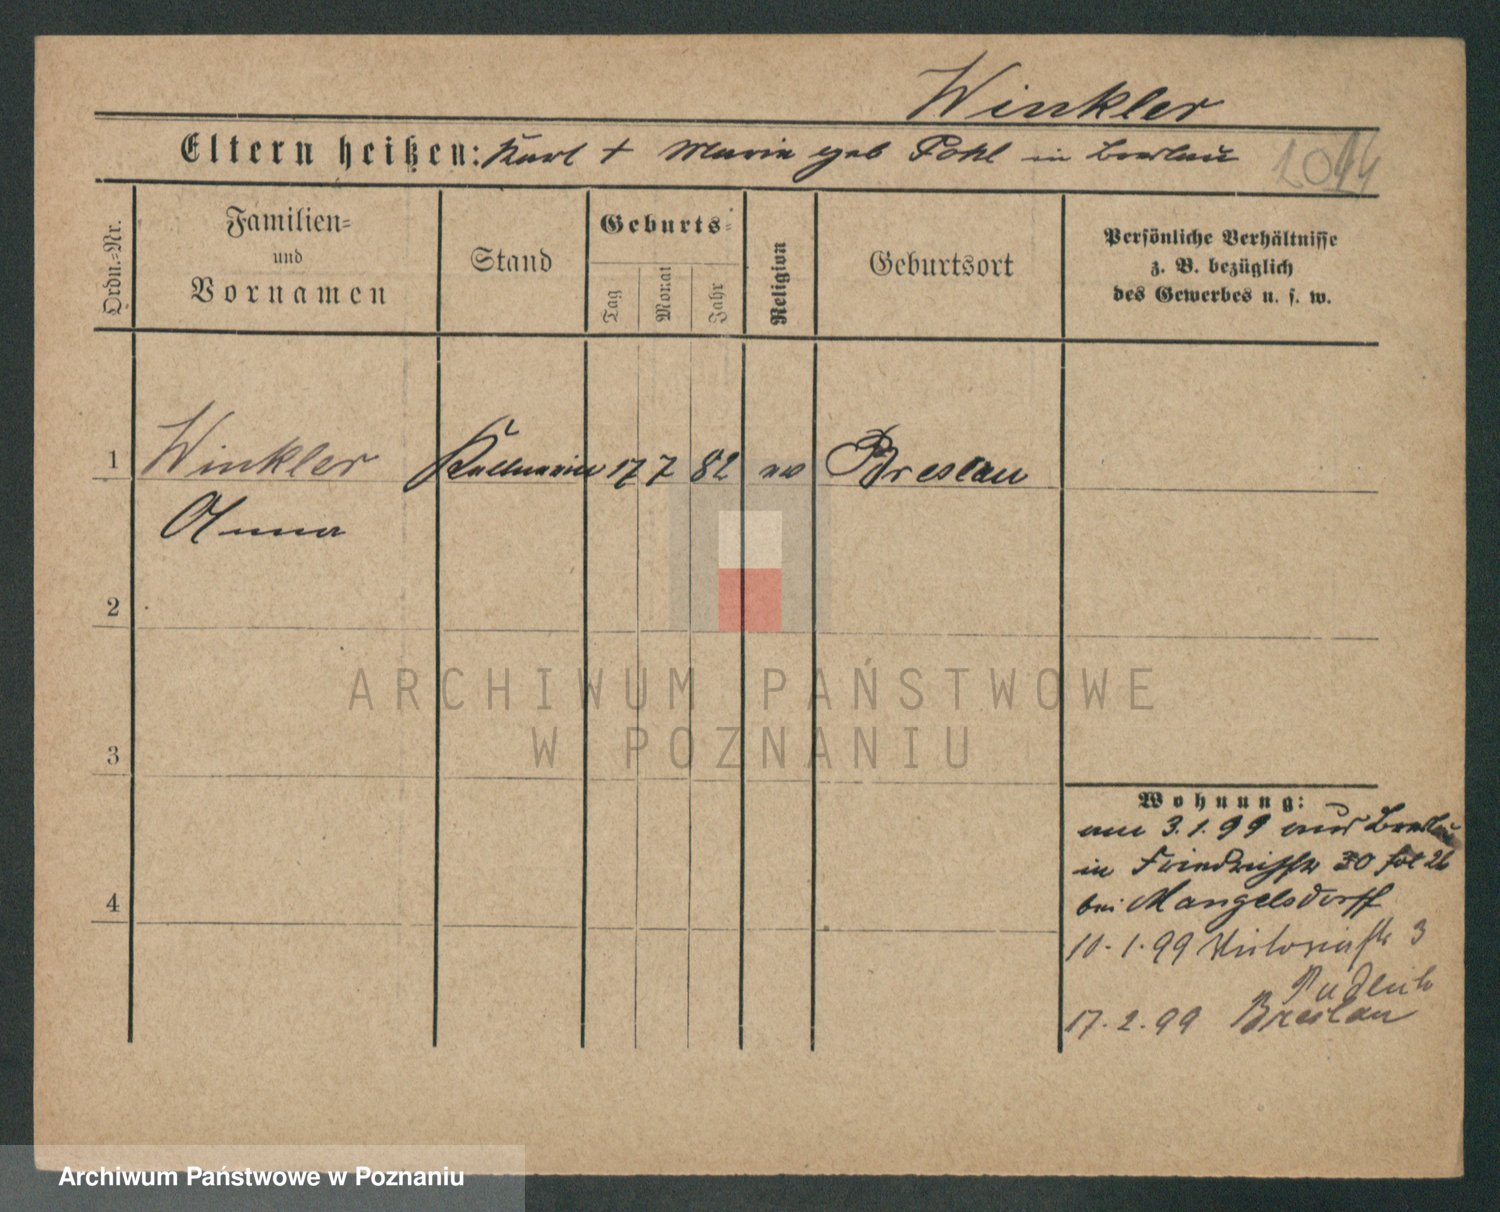 Winkler
Eltern heißen: Karl + Maria geb Pohl in Breslau
1044
Ordn.-Nr.
Familien-
und
Vornamen
Stand
Geburts-
Tag
Monat
Jahr
Religion
Geburtsort
Persönliche Verhältnisse
z. B. bezüglich
des Gewerbes u. s. w.
1 Winkler Kellnerin 17 7 82 ev Breslau
Anna
2
3
4
ARCHIWUM PAŃSTWOWE
W POZNANIU
Wohnung:
am 3.1.99 aus Breslau
in Friedrichstr 30 fol 26
bei Mangelsdorff
10.1.99 Victoriastr 3
17.2.99 Breslau
Archiwum Państwowe w Poznaniu